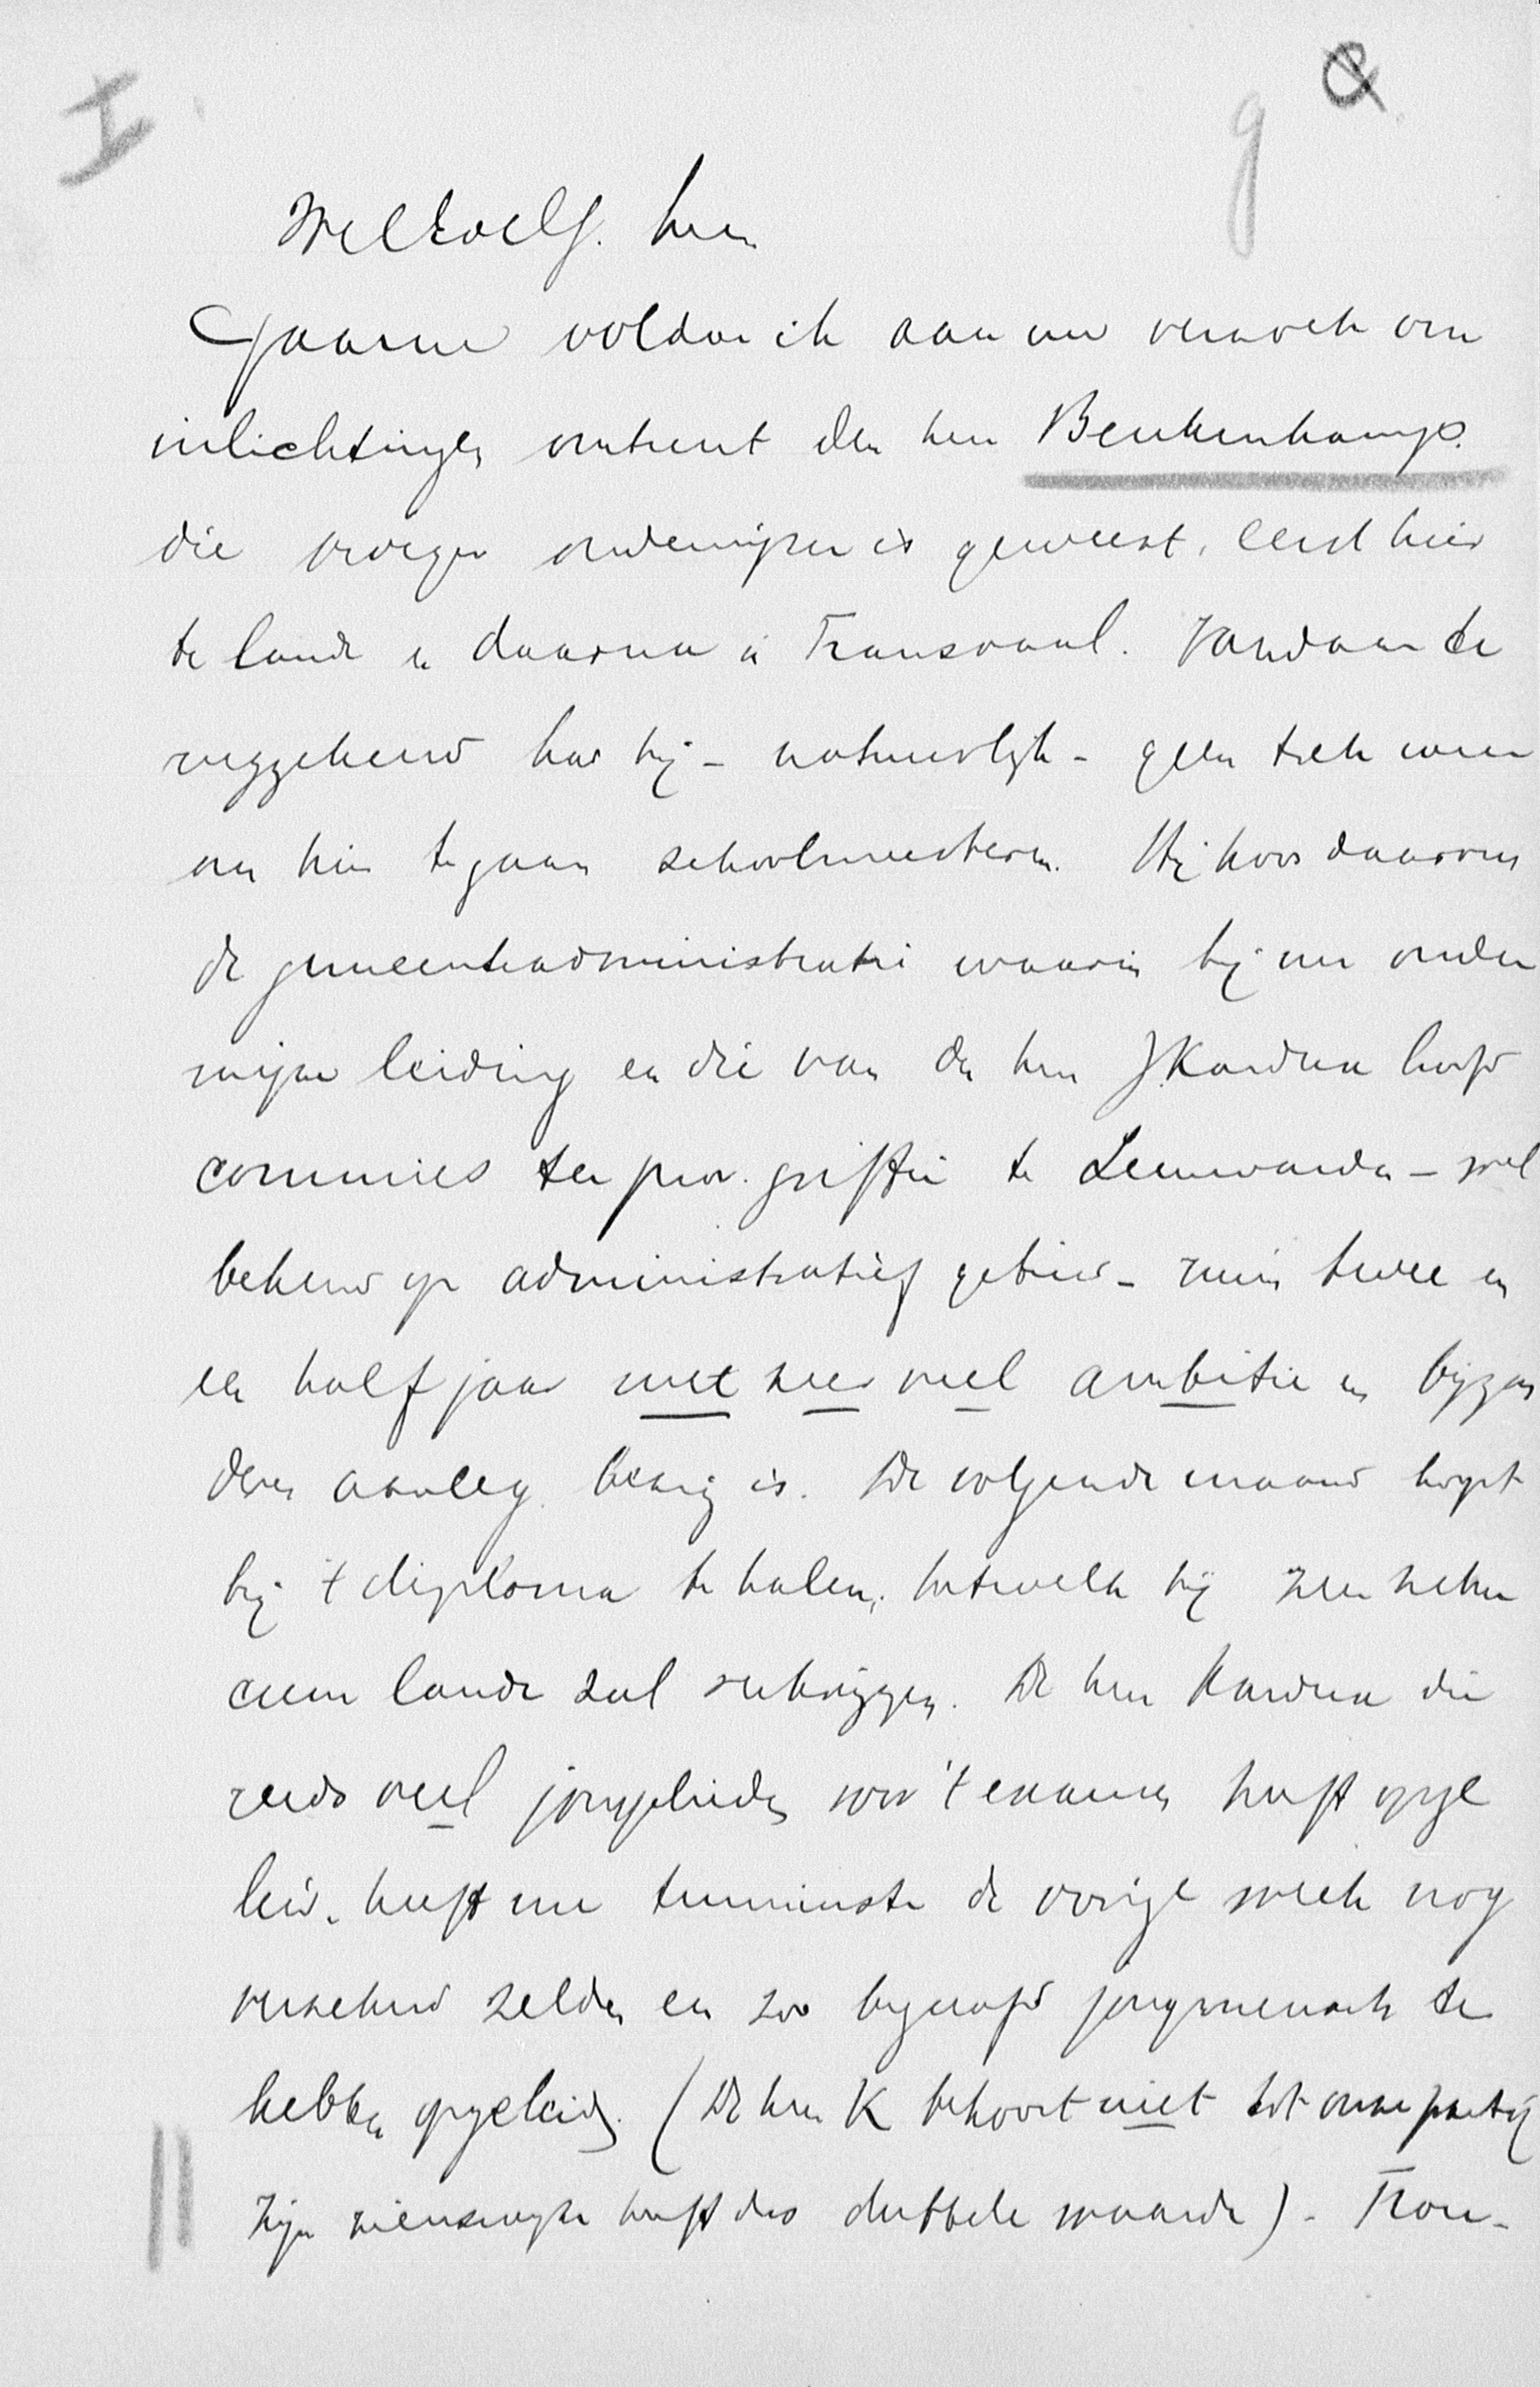 I
g &
WelEdelG. heer
Gaarne voldoe ik aan uw verzoek om
inlichtingen omtrent den heer Beukenkamp.
die vroeger onderwijzer is geweest, eerst hier
te lande en daarna in Transvaal. Vandaar te
ruggekeerd had hij - natuurlijk - geen trek meer
om hier te gaan schoolmeesteren. Hij koos daarom
de gemeenteadministratie waarin hij nu onder
mijne leiding en die van den heer J. Kardux hoofd
commies ter prov. griffie te Leeuwarden - wel
bekend op administratief gebied - ruim twee en
een half jaar met zeer veel ambitie en bijzon
deren aanleg bezig is. De volgende maand hoopt
hij 't diploma te halen, hetwelk hij zeer zeker
cum laude zal verkrijgen. De heer Kardux die
reeds veel jongelieden voor 't examen heeft opge
leid, heeft me tenminste de vorige week nog
verzekerd zelden een zoo begaafd jongmensch te
hebben opgeleid. (De heer K behoort niet tot onze partij
Zijn zienswijze heeft dus dubbele waarde). - Trou-